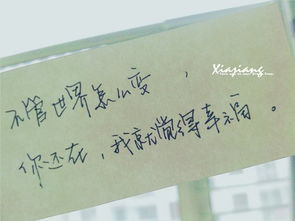 Xiaqiang
不管世界怎么变，
你还在，我就觉得幸福。